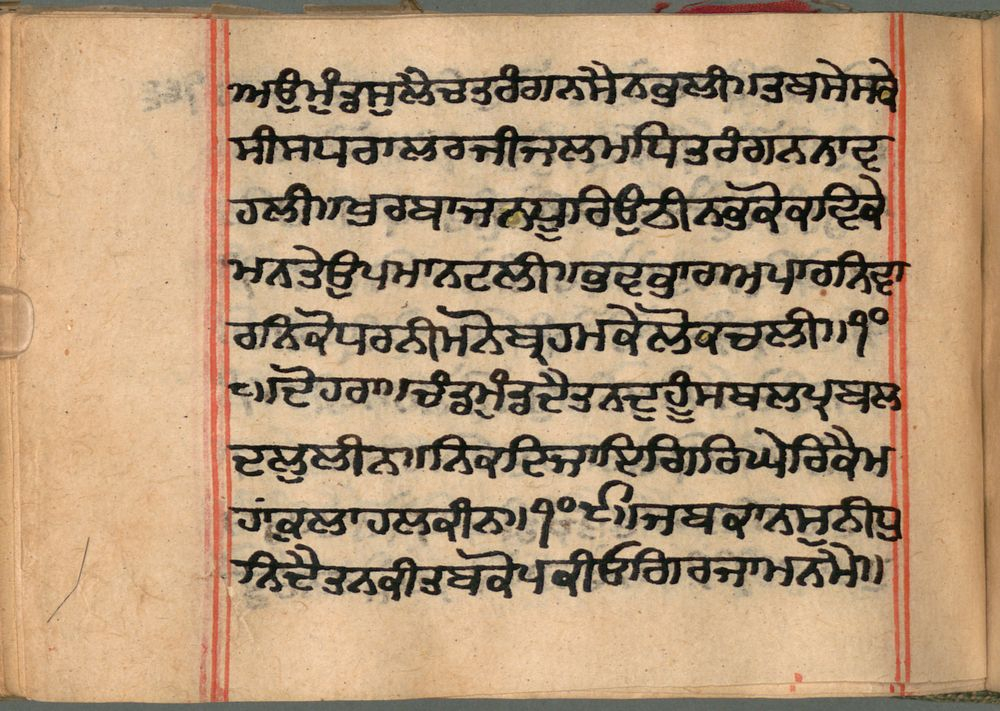 ਅਉਮੁੰਡਸੁਲੈਚਤਰੰਗਨਸੈਨਭਲੀ॥ਤਬਸੇਸਕੇ
ਸੀਸਧਰਾਲਰਜੀਜਲਮਧਿਤਰੰਗਨਨਾਵ
ਹਲੀ॥ਖੁਰਬਾਜਨਧੂਰਿਉਠੀਨਭਕੋਕਵਿਕੇ
ਮਨਤੇਉਪਮਾਨਟਲੀ॥ਭਵਭਾਰਅਪਾਰਨਿਵਾ
ਰਨਿਕੋਧਰਨੀਮੋਨੋਬ੍ਰਹਮਕੇਲੋਕਚਲੀ॥੧੦
੮॥ਦੋਹਰਾ॥ਚੰਡਮੁੰਡਦੈਤਨਦੁਹੂੰਸਬਲਪ੍ਰਬਲ
ਦਲੁਲੀਨ॥ਨਿਕਟਿਜਾਇਗਿਰਿਘੇਰਿਕੈਮ
ਹਾਂਕੁਲਾਹਲਕੀਨ॥੧੦੯॥ਜਬਕਾਨਸੁਨੀਧੁ
ਨਿਦੈਤਨਕੀਤਬਕੋਪਕੀਓਗਿਰਜਾਮਨਮੈ॥